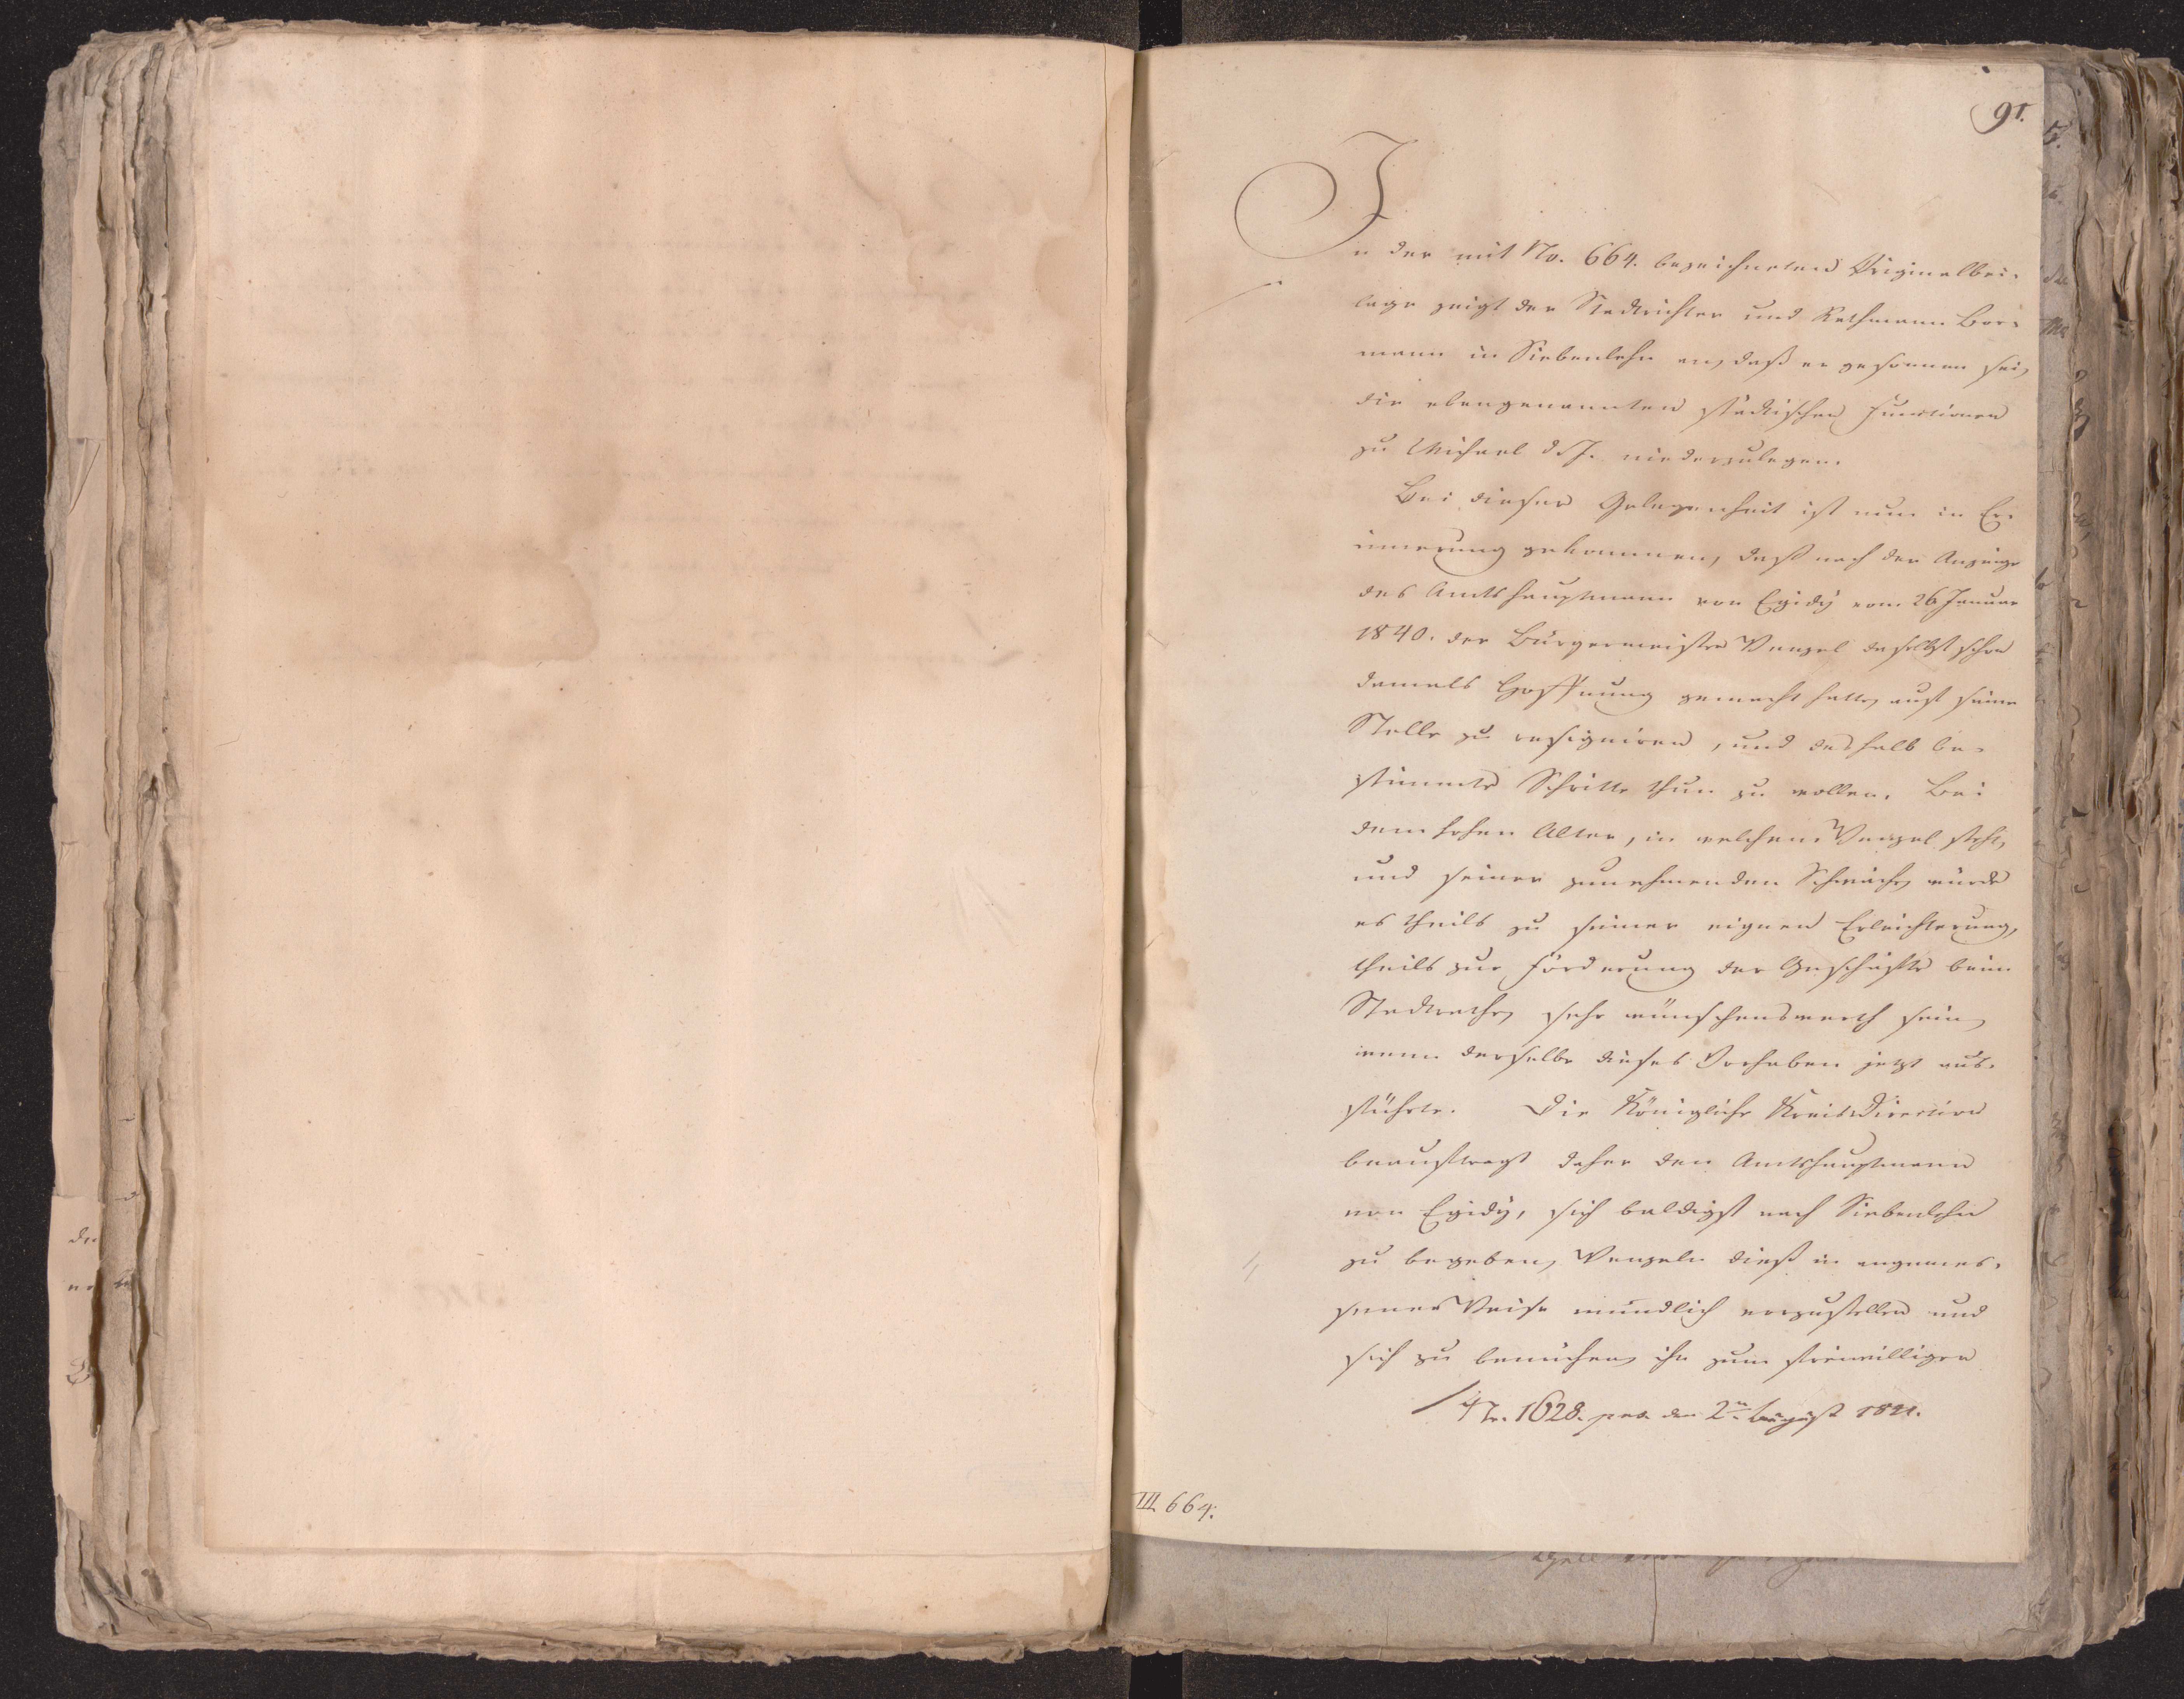 91.
In der mit No. 664. bezeichneten Originalbei-
lage zeigt der Stadtrichter und Rathmann Bor-
mann in Siebenlehn an, daß er gesonnen sei,
die ebengenannten städtischen Functionen
zu Michael d. J. niederzulegen.
Bei dieser Gelegenheit ist nun in Er-
innerung gekommen, daß nach der Anzeige
des Amtshauptmann von Egidy vom 26 Januar
1840. der Bürgermeister Wenzel daselbst schon
damals Hoffnung gemacht hatte, auf seine
Stelle zu resigniren, und deshalb be-
stimmte Schritte thun zu wollen. Bei
dem hohen Alter, in welchem Wenzel steht,
und seiner zunehmenden Schwäche, würde
es theils zu seiner eignen Erleichterung,
theils zur Förderung der Geschäfte beim
Stadtrathe, sehr wünschenswerth sein,
wenn derselbe dieses Vorhaben jetzt aus-
führte. Die Königliche KreisDirection
beauftragt daher den Amtshauptmann
von Egidy, sich baldigst nach Siebenlehn
zu begeben, Wenzeln dieß in angemes-
sener Weise mündlich vorzustellen und
sich zu bemühen, ihn zum freiwilligen
Nr. 1628. pras. den 2n August 1841.
III. 664.